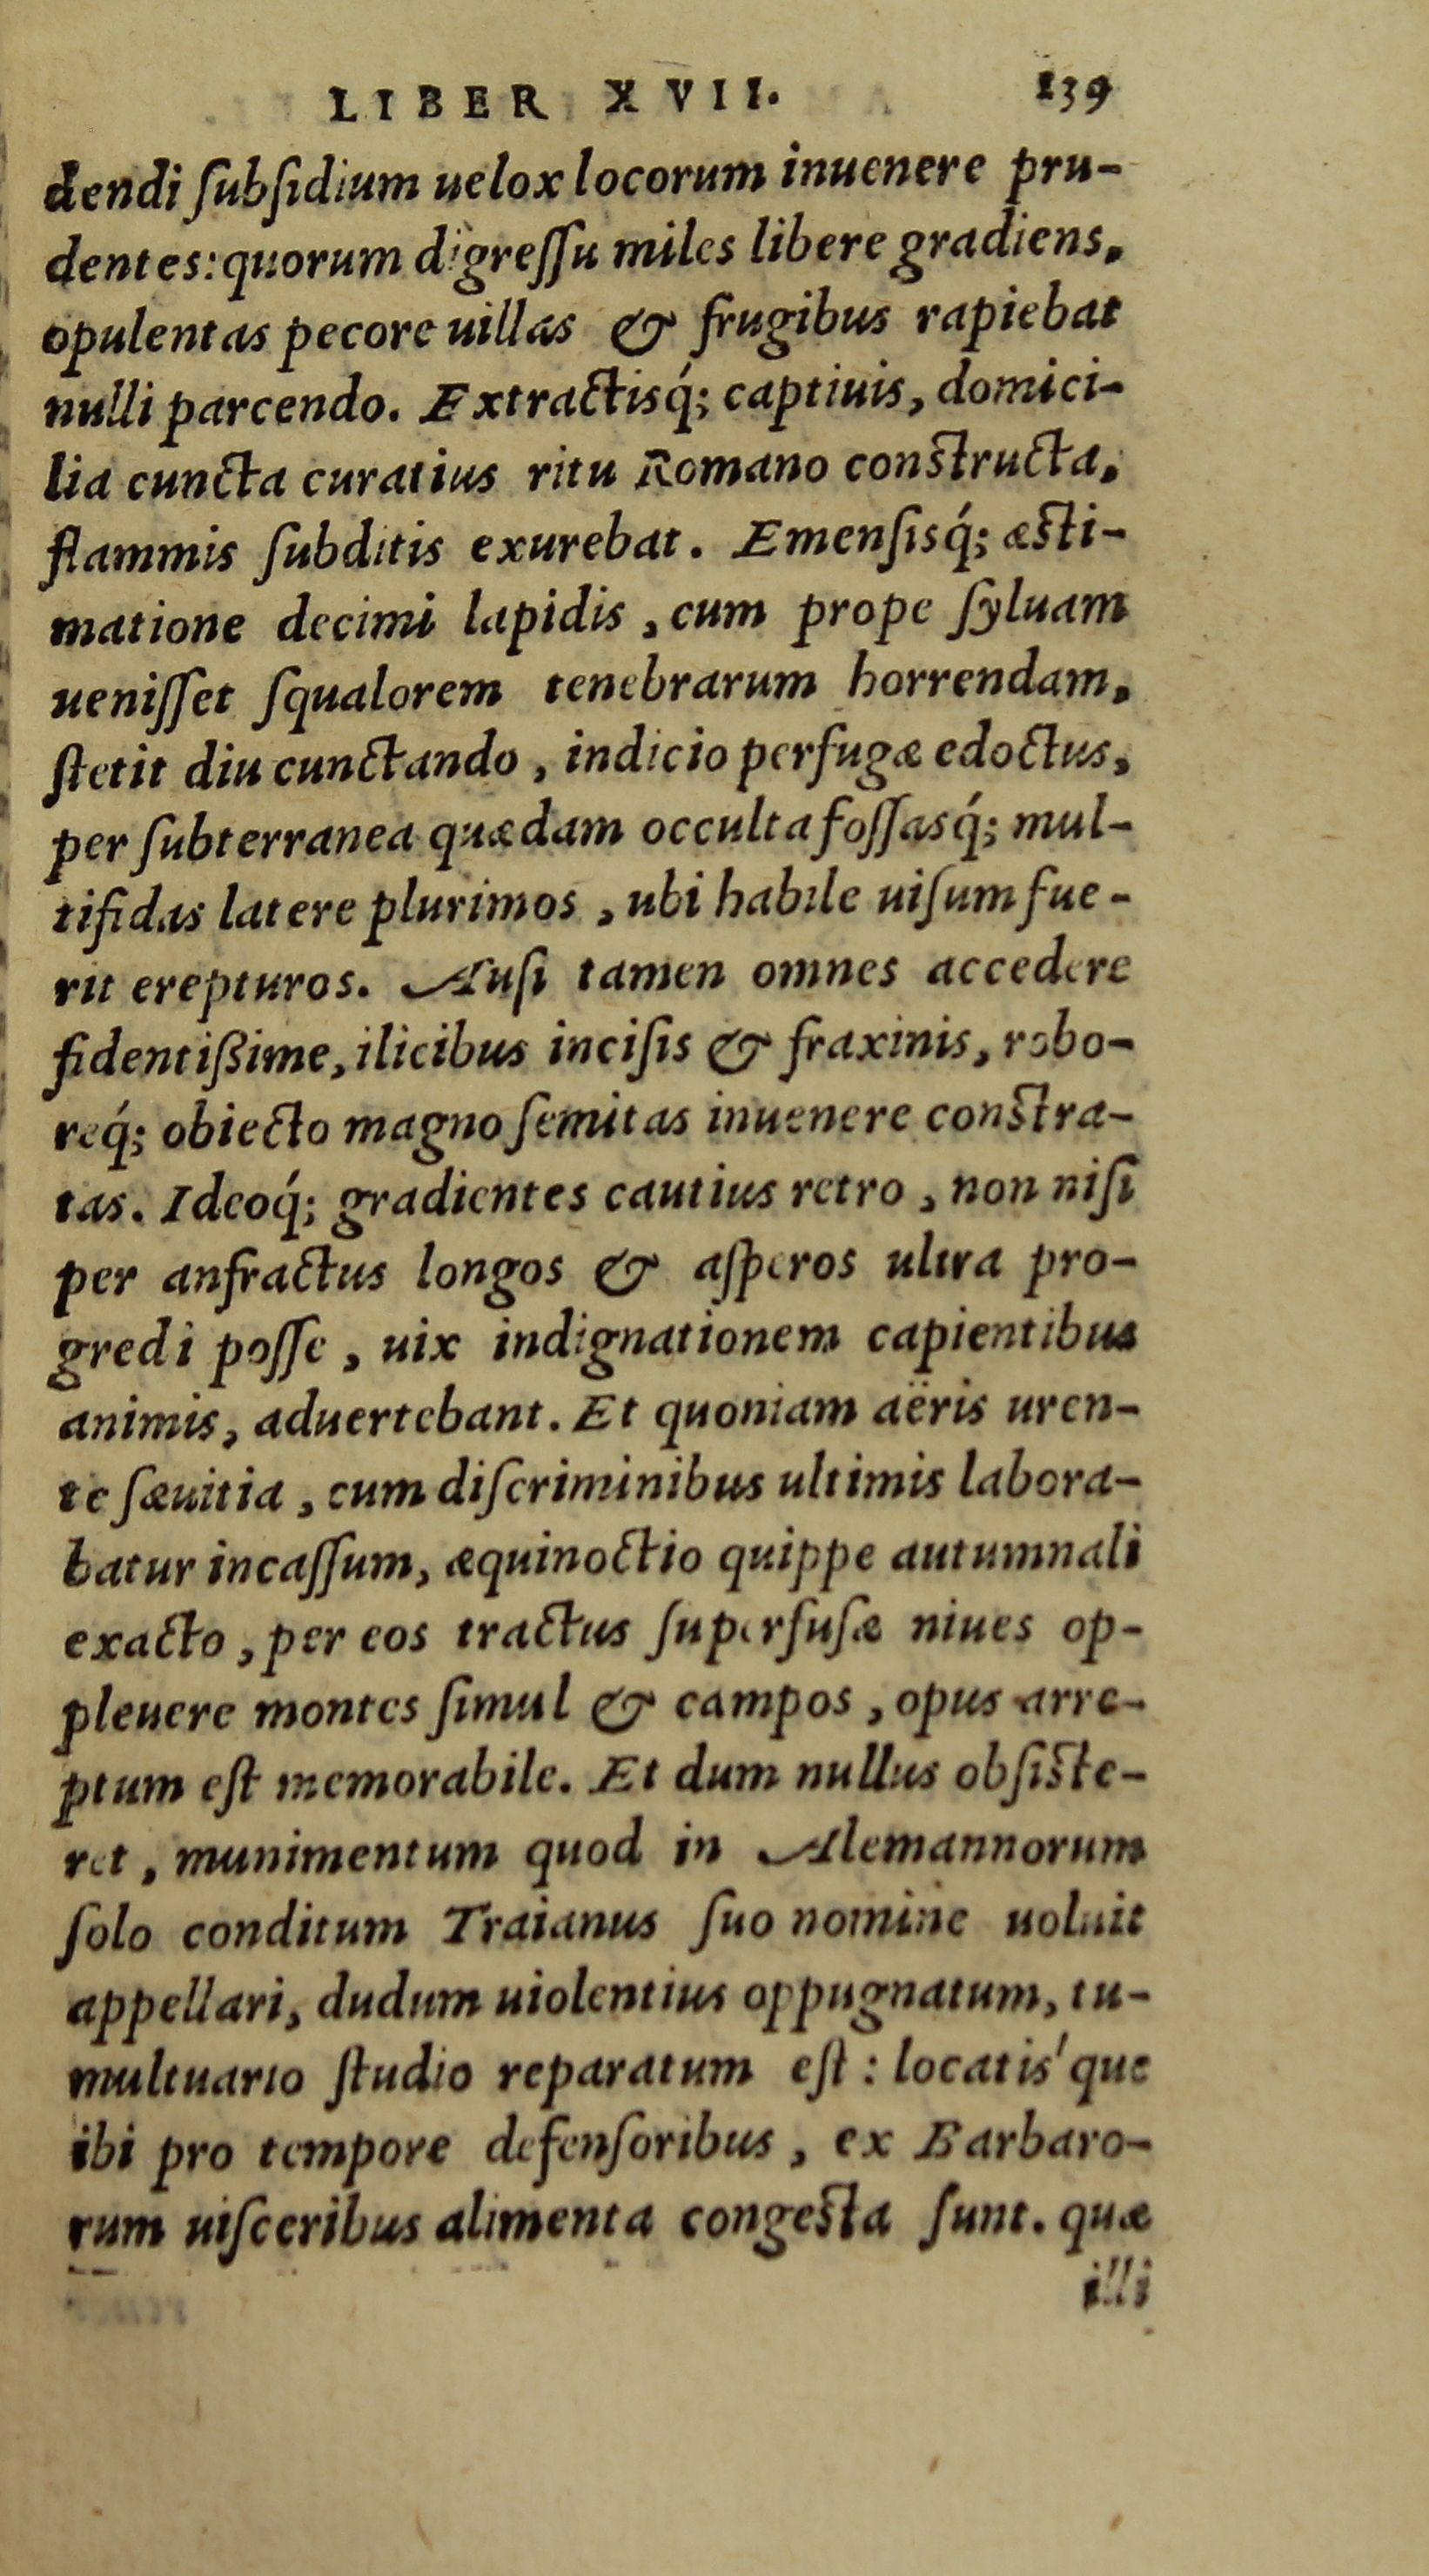 LIBER XVII. 139
dendi ſubſidium uelox locorum inuenere pru-
dentes: quorum digreſſu miles libere gradiens,
opulentas pecore uillas & frugibus rapiebat
nulli parcendo. Extractisq́; captiuis, domici-
lia cuncta curatius ritu Romano constructa,
flammis ſubditis exurebat. Emenſisq́; æsti-
matione decimi lapidis, cum prope ſyluam
ueniſſet ſqualorem tenebrarum horrendam,
ſtetit diu cunctando, indicio perfugæ edoctus,
per ſubterranea quædam occulta foſſasq́; mul-
tifidas latere plurimos, ubi habile uiſum fue-
rit erepturos. Auſi tamen omnes accedere
fidentißime, ilicibus inciſis & fraxinis, robo-
req́; obiecto magno ſemitas inuenere constra-
tas. Ideoq́; gradientes cautius retro, non niſi
per anfractus longos & aſperos ultra pro-
gredi poſſe, uix indignationem capientibus
animis, aduertebant. Et quoniam aëris uren-
te ſæuitia, cum diſcriminibus ultimis labora-
batur incaſſum, æquinoctio quippe autumnali
exacto, per eos tractus ſuperfuſæ niues op-
pleuere montes ſimul & campos, opus arre-
ptum eſt memorabile. Et dum nullus obſiste-
ret, munimentum quod in Alemannorum
ſolo conditum Traianus ſuo nomine uoluit
appellari, dudum uiolentius oppugnatum, tu-
multuario ſtudio reparatum eſt: locatis'que
ibi pro tempore defenſoribus, ex Barbaro-
rum uiſceribus alimenta congesta ſunt. quæ
illi